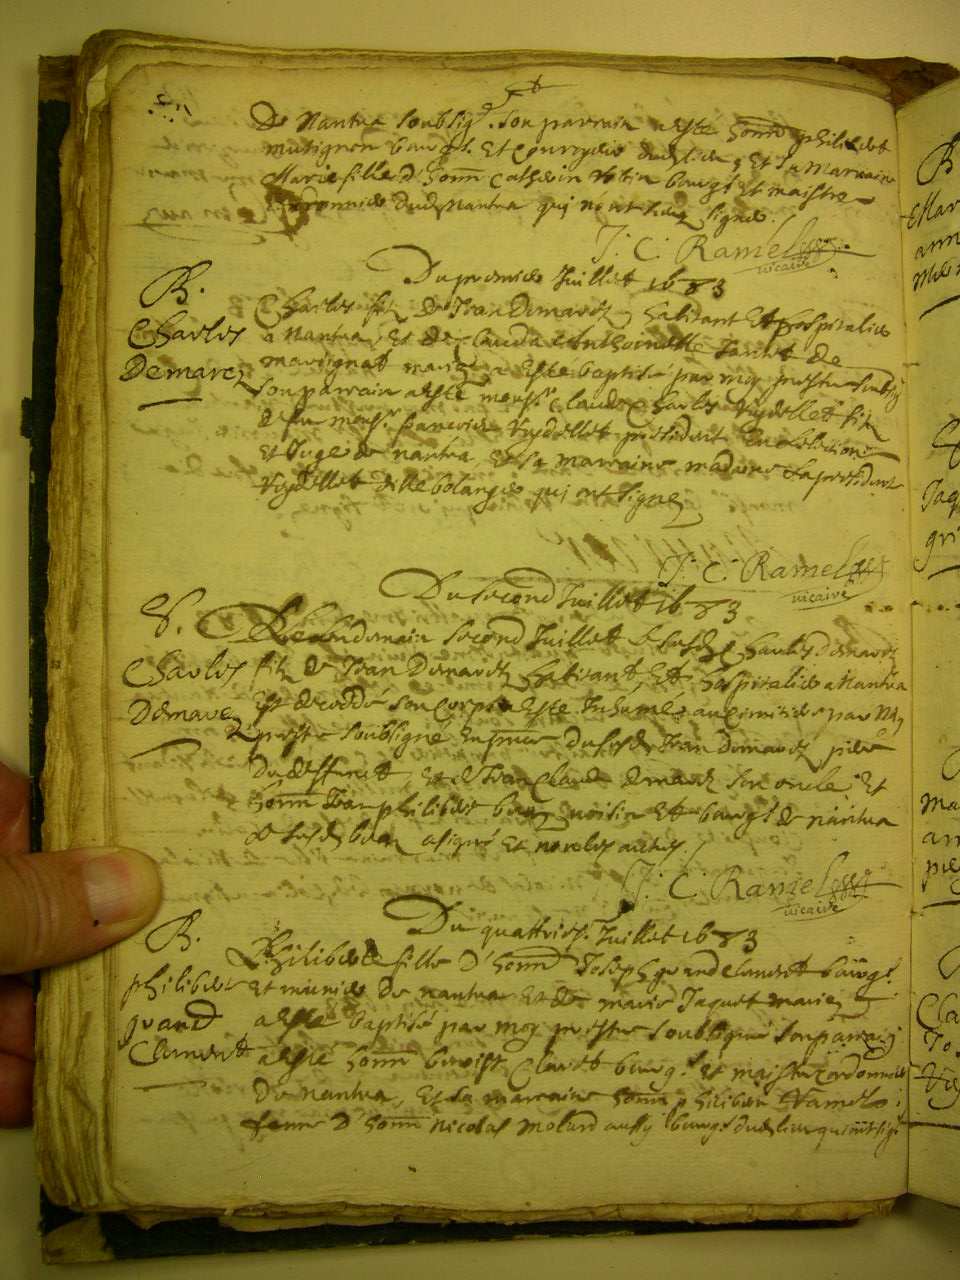 De Nantua soubsig.é son parrain a esté honn philibert
mutignon bourg.s et courryer dud lieu, Et sa Marraine
Marie fille d'honn Catherin bourg.s et maistre
dud Nantua qui n'ont sceu signer.
J. C. Ramel
vicaire
Du premier Juillet 1683
B.
Charles
Demarez
Charles fils de Jean Demarez habitant Et hospitalier
a Nantua, et de Clauda Anthoinette de
marignat mariez a Esté baptisé par moy prestre soubsig
son parrain a esté mons.r Claude Charles Vuydellet fils
de feu mons.r francois Vuydellet president En eslection
Et Juge de nantua, et sa marraine madame la presidente
Vuydellet dille bolangier qui ont signez
J. C. Ramel
vicaire
Du second Juillet 1683
S.
Charles
Demarez
Le lendemain second Juillet le susd Charles Demarez
fils de Jean Demarez habitant Et hospitalier a Nantua
Est decedé son corps a Esté Inhumé au cimitiere par Moy
prestre soubsigné En pnce du susd Jean Demarez pere
du deffunct, et de Jean Claude demarez son oncle, Et
honn Jean philibert voisin Et bourg.s de nantua
le susd a signé Et non les autres
J. C. Ramel
vicaire
Du quattries. Juillet 1683
B.
philiberte
grand
Clement
Philiberte fille d'honn Joseph grandclement bourg.s
Et munier de nantua Et de marie Jaquet mariez
a esté baptisé par moy prestre soubsigné son parrain
a esté honn benoist Claret bourg.s et maistre cordonnier
De nantua, Et sa marraine honn philiberte Hamel
femme d'honn Nicolas Molard aussy bourg.s dud lieu qui ont sig.é